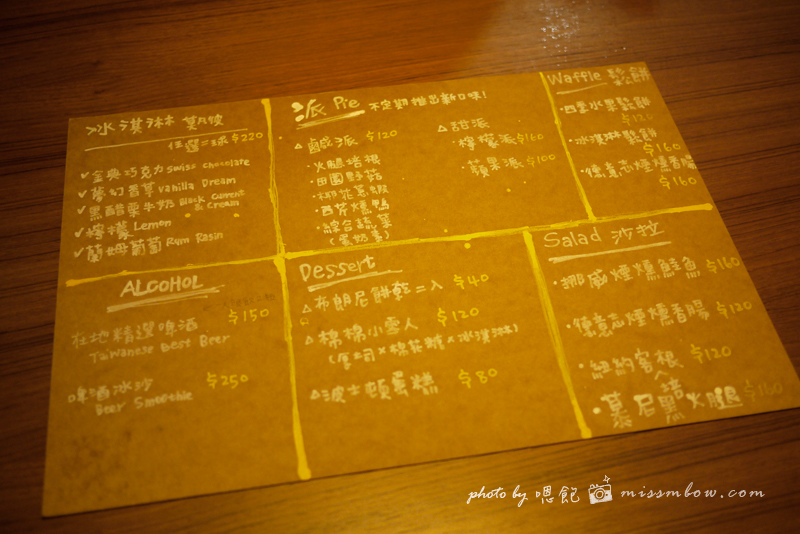 冰淇淋
任選二球 $220
✓金典巧克力 Swiss Chocolate
✓夢幻香草 Vanilla Dream
✓黑醋栗牛奶 Black Currant & Cream
✓檸檬 Lemon
✓蘭姆葡萄 Rum Rasin
派 Pie 不定期推出新口味!
△鹹派 $120
・火腿培根
・田園野菇
・椰花
・西芹燻鴨
・綜合蔬菜
(蛋奶素)
△甜派
・檸檬派 $160
・蘋果派 $100
Waffle 鬆餅
・四季水果鬆餅
$120
・冰淇淋鬆餅
$160
・德意志煙燻香腸
$160
ALCOHOL
在地精選啤酒 $150
Taiwanese Best Beer
啤酒冰沙 $250
Beer Smoothie
Dessert
△布朗尼餅乾二入 $40
△棉棉小雪人 $120
(厚吐司x棉花糖x冰淇淋)
△波士頓蛋糕 $80
Salad 沙拉
・挪威煙燻鮭魚 $160
・德意志煙燻香腸 $120
・紐約客培根 $120
・慕尼黑火腿 $160
photo by 嗯飽 missmbow.com